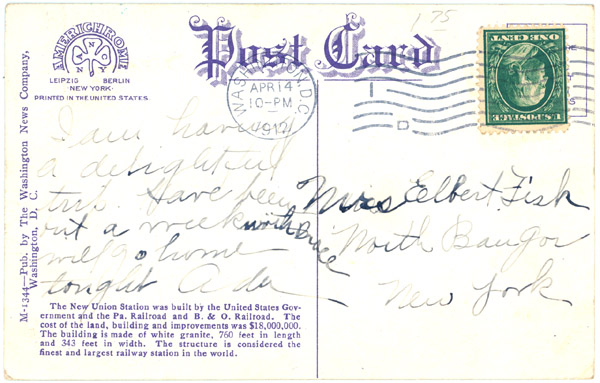 1 75
Post Card
AMERICHROME
A N C O N Y
LEIPZIG BERLIN
NEW YORK
PRINTED IN THE UNITED STATES.
WASHINGTON, D.C.
APR 14
10-PM
1912
1
D
ONE CENT
U.S. POSTAGE
M-1344—Pub. by The Washington News Company,
Washington, D. C.
I am having
a delightful
trip. Have been
out a week with Bruce
will go home
tonight Ada
Mrs Elbert Fisk
North Bangor
New York
The New Union Station was built by the United States Gov-
ernment and the Pa. Railroad and B. & O. Railroad. The
cost of the land, building and improvements was $18,000,000.
The building is made of white granite, 760 feet in length
and 343 feet in width. The structure is considered the
finest and largest railway station in the world.